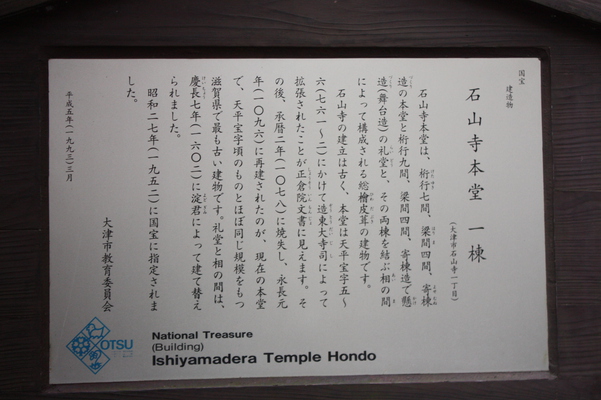 国宝
建造物
石山寺本堂 一棟
（大津市石山寺一丁目）
石山寺本堂は、桁行七間、梁間四間、寄棟
造の本堂と桁行九間、梁間四間、寄棟造で懸
造（舞台造）の礼堂と、その両棟を結ぶ相の間
によって構成される総檜皮葺の建物です。
石山寺の建立は古く、本堂は天平宝字五〜
六（七六一〜二）にかけて造東大寺司によって
拡張されたことが正倉院文書に見えます。そ
の後、承暦二年（一〇七八）に焼失し、永長元
年（一〇九六）に再建されたのが、現在の本堂
で、天平宝字頃のものとほぼ同じ規模をもつ
滋賀県で最も古い建物です。礼堂と相の間は、
慶長七年（一六〇二）に淀君によって建て替え
られました。
昭和二七年（一九五二）に国宝に指定されま
した。
平成五年（一九九三）三月
大津市教育委員会
OTSU
National Treasure
(Building)
Ishiyamadera Temple Hondo